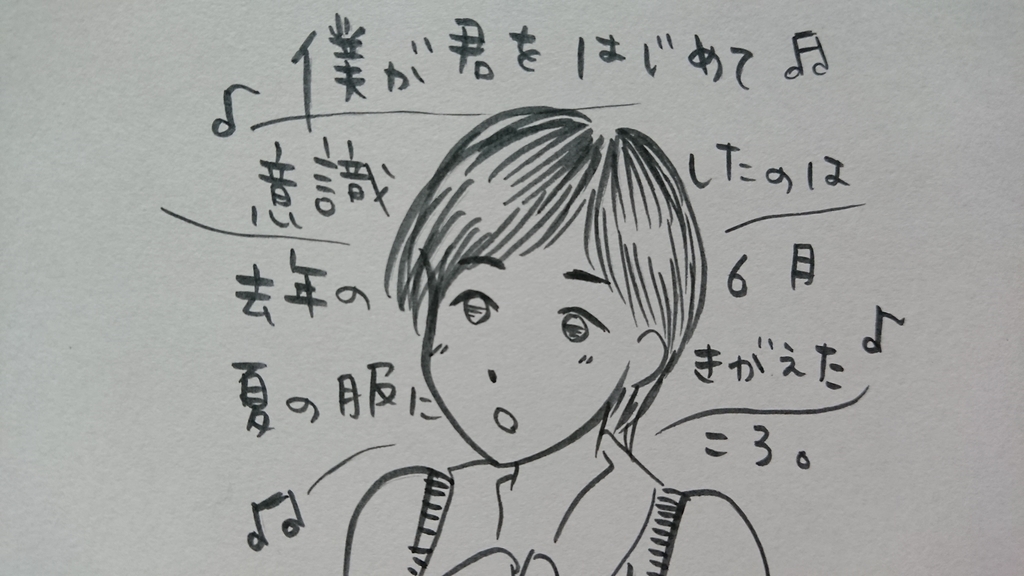 僕が君をはじめて
意識したのは
去年の6月
夏の服にきがえた
ころ。